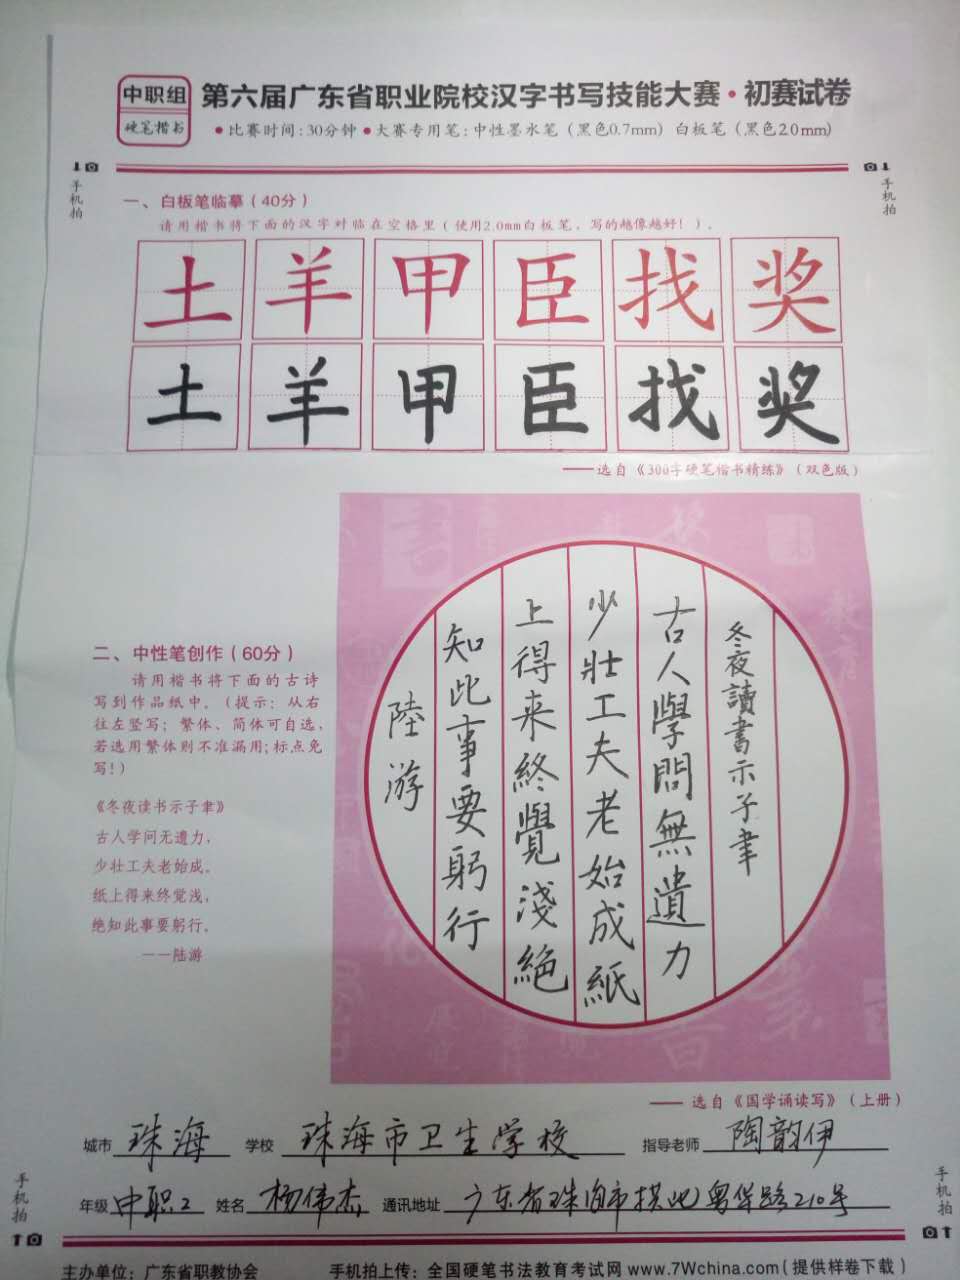 中职组
硬笔楷书
第六届广东省职业院校汉字书写技能大赛·初赛试卷
●比赛时间:30分钟●大赛专用笔:中性墨水笔(黑色0.7mm)白板笔(黑色2.0mm)
手机拍
手机拍
一、白板笔临摹(40分)
请用楷书将下面的汉字对临在空格里(使用2.0mm白板笔,写的越像越好!)。
土羊甲臣找奖
土羊甲臣找奖
——选自《300字硬笔楷书精练》(双色版)
二、中性笔创作(60分)
请用楷书将下面的古诗
写到作品纸中。(提示:从右
往左竖写;繁体、简体可自选,
若选用繁体则不准漏用;标点免
写!)
《冬夜读书示子聿》
古人学问无遗力,
少壮工夫老始成。
纸上得来终觉浅,
绝知此事要躬行。
——陆游
冬夜讀書示子聿
古人學問無遺力
少壯工夫老始成紙
上得来終覺淺絕
知此事要躬行
陸游
——选自《国学诵读写》(上册)
城市 珠海 学校 珠海市卫生学校 指导老师 陶韵伊
年级 中职2 姓名 杨伟杰 通讯地址 广东省珠海市拱北粤华路210号
手机拍
手机拍
主办单位:广东省职教协会 手机拍上传:全国硬笔书法教育考试网www.7Wchina.com(提供样卷下载)